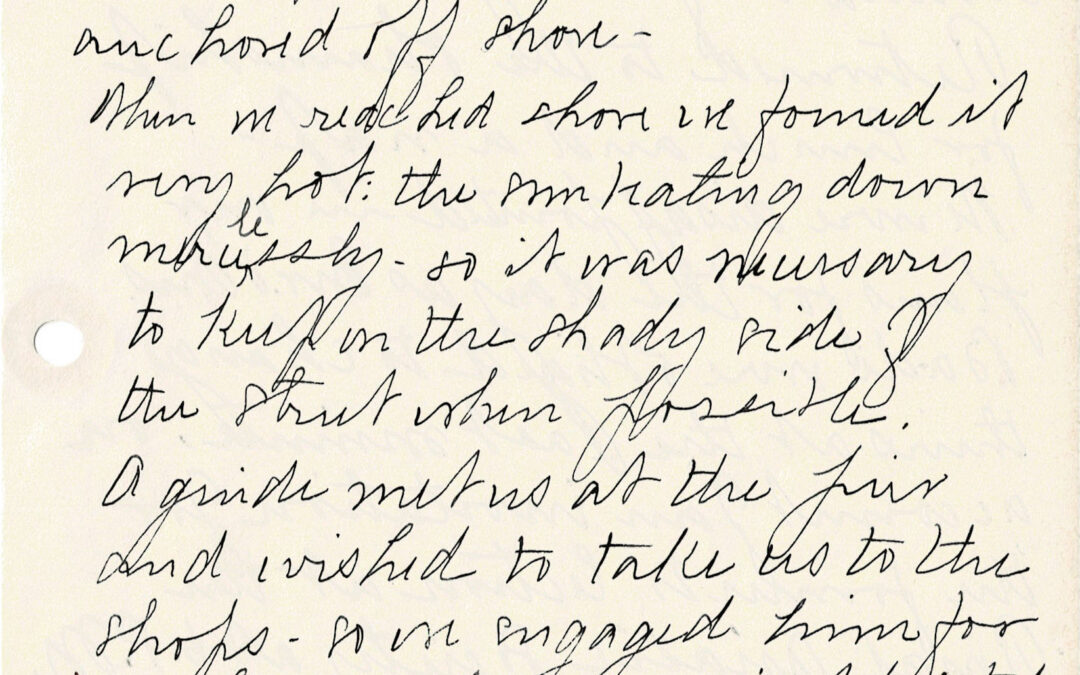 anchored off shore -
When we reached shore we found it
very hot: the sun beating down
mercilessly - so it was necessary
to keep on the shady side of
the street when possible.
A guide met us at the pier
and wished to take us to the
shops - so we engaged him for